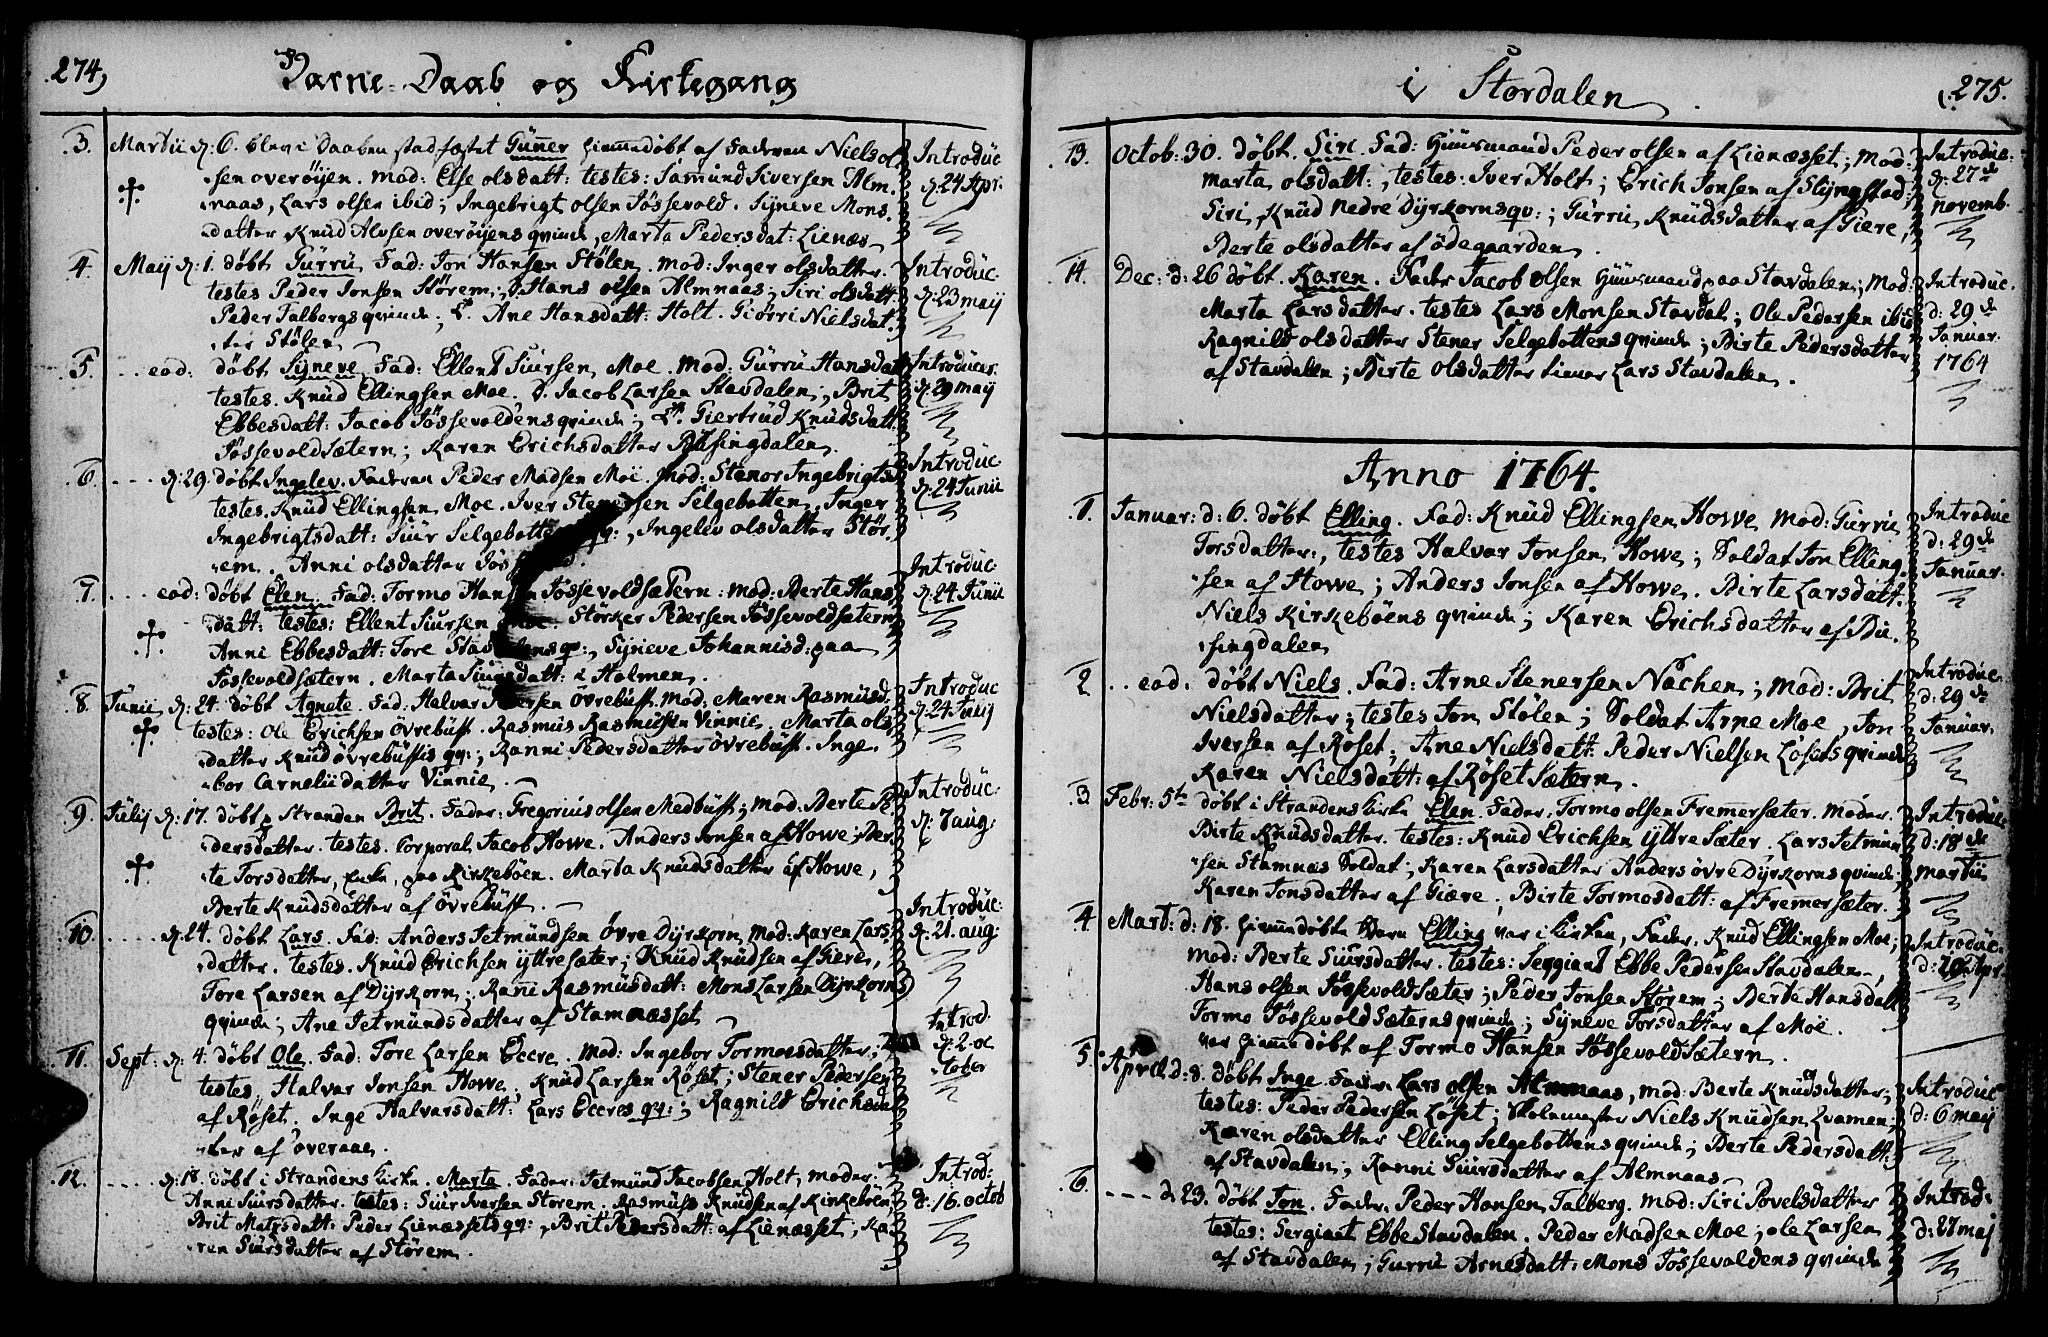 274,
Barne-Daab og Kirkegang
3. Martii d: 6. blev i Daaben stadfæstet Gunner hiemmedöbt af Faderen Niels ol-
sen overöyen. Mod: Else olsdatt: testes: Samund Siversen Alm-
naas, Lars olsen ibid; Ingebrigt olsen Fössevold. Syneve Mons-
datter Knud Alvsen overöyens qvinde, Marta Pedersdat: Lienæs
Introduc
d: 24 Apr.
4. Maij d: 1. döbt Gurru Fad: Jon Hansen Stölen. Mod: Inger olsdatter.
testes Peder Jonsen Störem; Hans olsen Almnaas; Siri olsdatt:
Peder Talbergs qvinde; Ane Hansdatt: Holt. Giörri Nielsdat-
ter Stölen
Introduc
d: 23 maij
5. .. eod: döbt Syneve Fad: Ellent Siursen Moe. Mod: Gurru Hansdatt
testes. Knud Ellingsen Moe. Jacob Larsen Stavdalen; Brit
Ebbesdatt: Jacob Fössevoldens qvinde; Giertrud Knudsdatt:
Fössevoldsætern; Karen Erichsdatter Busingdalen.
Introducer.
d: 29 maij
6. ... d: 29. döbt Ingelev. Faderen Peder Madsen Moe. Mod: Stenor Ingebrigtsd
testes. Knud Ellingsen Moe. Iver Stenersen Selgebotten. Inger
Ingebrigtsdatt: Siur Selgebottens qv:, Ingelev olsdatter Stör-
em. Anni olsdatter
Introduc
d: 24 Junii
7. .... eod: döbt Elen. Fad: Tormo Hansen Fössevoldsætern: mod: Berte Hans-
datt: testes: Ellent Siursen Moe. Störker Pedersen Fössevoldsetern
Anni Ebbesdatt: Tore Stavdalens qv:, Syneve Johannisd: paa
Fössevoldsætern. Marta Siursdatt: i Holmen.
Introduc:
d: 24 Junii
8. Junii d: 24. döbt Agnete. Fad: Halvar Iversen Övrebust. Mod: Maren Rasmusd.
testes: Ole Erichsen Övrebust. Rasmus Rasmussen Vinnie. Marta ols-
datter Knud övrebustis qv:; Ranni Pedersdatter övrebust. Inge-
bor Carneliidatter Vinnie.
Introduc
d: 24 Julij
9. Julij d: 17. döbt i Stranden Brit. Fader: Gregorius olsen Medbust; Mod: Berte Pe-
dersdatter. testes. Corporal Jacob Howe. Anders Jonsen af Howe; Ber-
te Torsdatter, Enke, paa Kirkeböen. Marta Knudsdatter af Howe,
Berte Knudsdatter af övrebust.
Introduc:
d: 7 aug:
10. .... d: 24. döbt Lars. Fad: Anders Jetmundsen Övre Dyrkorn, Mod: Karen Lars-
datter. testes. Knud Erichsen yttre sæter; Knud Knudsen af Giere,
Tore Larsen af Dyrkorn; Rani Rasmusdatt: Mons Larsen Dyrkorns
qvinde; Ane Jetmundsdatter af Stamnæsset
Introduc:
d: 21. aug:
11. Sept: d: 4. döbt Ole. Fad: Tore Larsen Eccre. Mod: Ingebor Tormoesdatter;
testes Halvar Jonsen Howe, Knud Larsen Röset; Stener Pedersen
af Röset. Inge Halvarsdatt: Lars Eccres qv:; Ragnild Erichsdat-
ter af överaae.
Introd.
d: 2. oc
tober
12. .... d: 18. döbt i Strandens kirke. Marte. Fader: Jetmund Jacobsen Holt, moder:
Anni Siursdatter. testes: Siur Iversen Storem. Rasmus Knudsen af Kirkeböen,
Brit Matisdatt: Peder Lienæssets qv:, Brit Pedersdatt: af Lienæsset, Ka-
ren Siursdatter af Störem.
Introd:
d: 16. octob
i Stordalen
275.
13. Octob: 30. döbt. Siri. Fad: Huusmand Peder olsen af Lienæsset; Mod:
Marta olsdatt:, testes: Iver Holt; Erich Jonsen af Slyngstad;
Siri, Knud Nedre Dyrkorns qv:; Gurru Knudsdatter af Giere,
Berte olsdatter af ödegaarden.
Introduc:
d: 27de
novemb.
14. Dec: d: 26 döbt. Karen. Fader Jacob olsen Huusmand paa Stavdalen; Mod:
Marta Larsdatter. testes Lars Monsen Stavdal; Ole Pedersen ibid
Ragnild olsdatter Stener Selgebottens qvinde; Birte Pedersdatter
af Stavdalen; Berte Olsdatter tiener Lars Stavdalen.
Introduc.
d: 29de
Januar.
1764
Anno 1764.
1. Januar: d: 6. döbt Elling. Fad: Knud Ellingsen Howe Mod: Gurru
Torsdatter:, testes Halvar Jonsen Howe; Soldat Jon Elling-
sen af Howe; Anders Jonsen af Howe. Birte Larsdatt:
Niels Kirkeböens qvinde; Karen Erichsdatter af Bu-
singdalen
Introduc
d: 29de
Januar.
2 .. eod: döbt Niels. Fad: Arne Stenersen Nachen; Mod: Brit
Nielsdatter; testes Jon Stölen; Soldat Arne Moe, Jon
Iversen af Röset; Ane Nielsdatt: Peder Nielsen Lösets qvinde
Karen Nielsdatt: af Röset Sætern.
Introduc.
d: 29de
Januar.
3 Febr: 5te döbt i Strandens kirke Elen. Fader. Tormo olsen Fremersæter. Moder.
Birte Knudsdatter. testes: Knud Erichsen yttre Sæter. Lars Jetmun-
sen Stamnæs Soldat; Karen Larsdatter Anders övre Dyrkorns qvinde;
Karen Jonsdatter af Giære, Birte Tormosdatt: af Fremersæter.
Introduc.
d: 18de
martii
4 Mart: d: 18. hiemmedöbt Barn Elling var i kirken, Fader. Knud Ellingsen Moe;
Mod: Berte Siursdatter. testes: Sergiant Ebbe Pedersen Stavdalen,
Hans olsen Fössevold Sæter; Peder Jonsen Störem; Berte Hansdatt
Tormo Fössevold Sæterns qvinde; Syneve Torsdatter af Moe.
var hiemmedöbt af Tormo Hansen Fössevold Sætern.
Introduc.
d: 20 Apr.
5. Aprili d: 8. döbt Inge Fader Lars olsen Almnaas, Mod: Berte Knudsdatter;
testes: Peder Pedersen Löset; Skolemester Niels Knudsen Qvamen;
Karen olsdatter Elling Selgebottens qvinde; Berte Pedersdatt:
af Stavdalen; Ranni Siursdatter af Almnaas
Introduc
d: 6 maij
6. .... d. 23. döbt Jon. Fader. Peder Hansen Talberg. Mod: Siri Povelsdatter
testes: Sergiant Ebbe Stavdalen. Peder Madsen Moe; ole Larsen
af Stavdalen; Gurru Arnesdatt: Mons Fössevoldens qvinde
Introd:
d: 27 maj